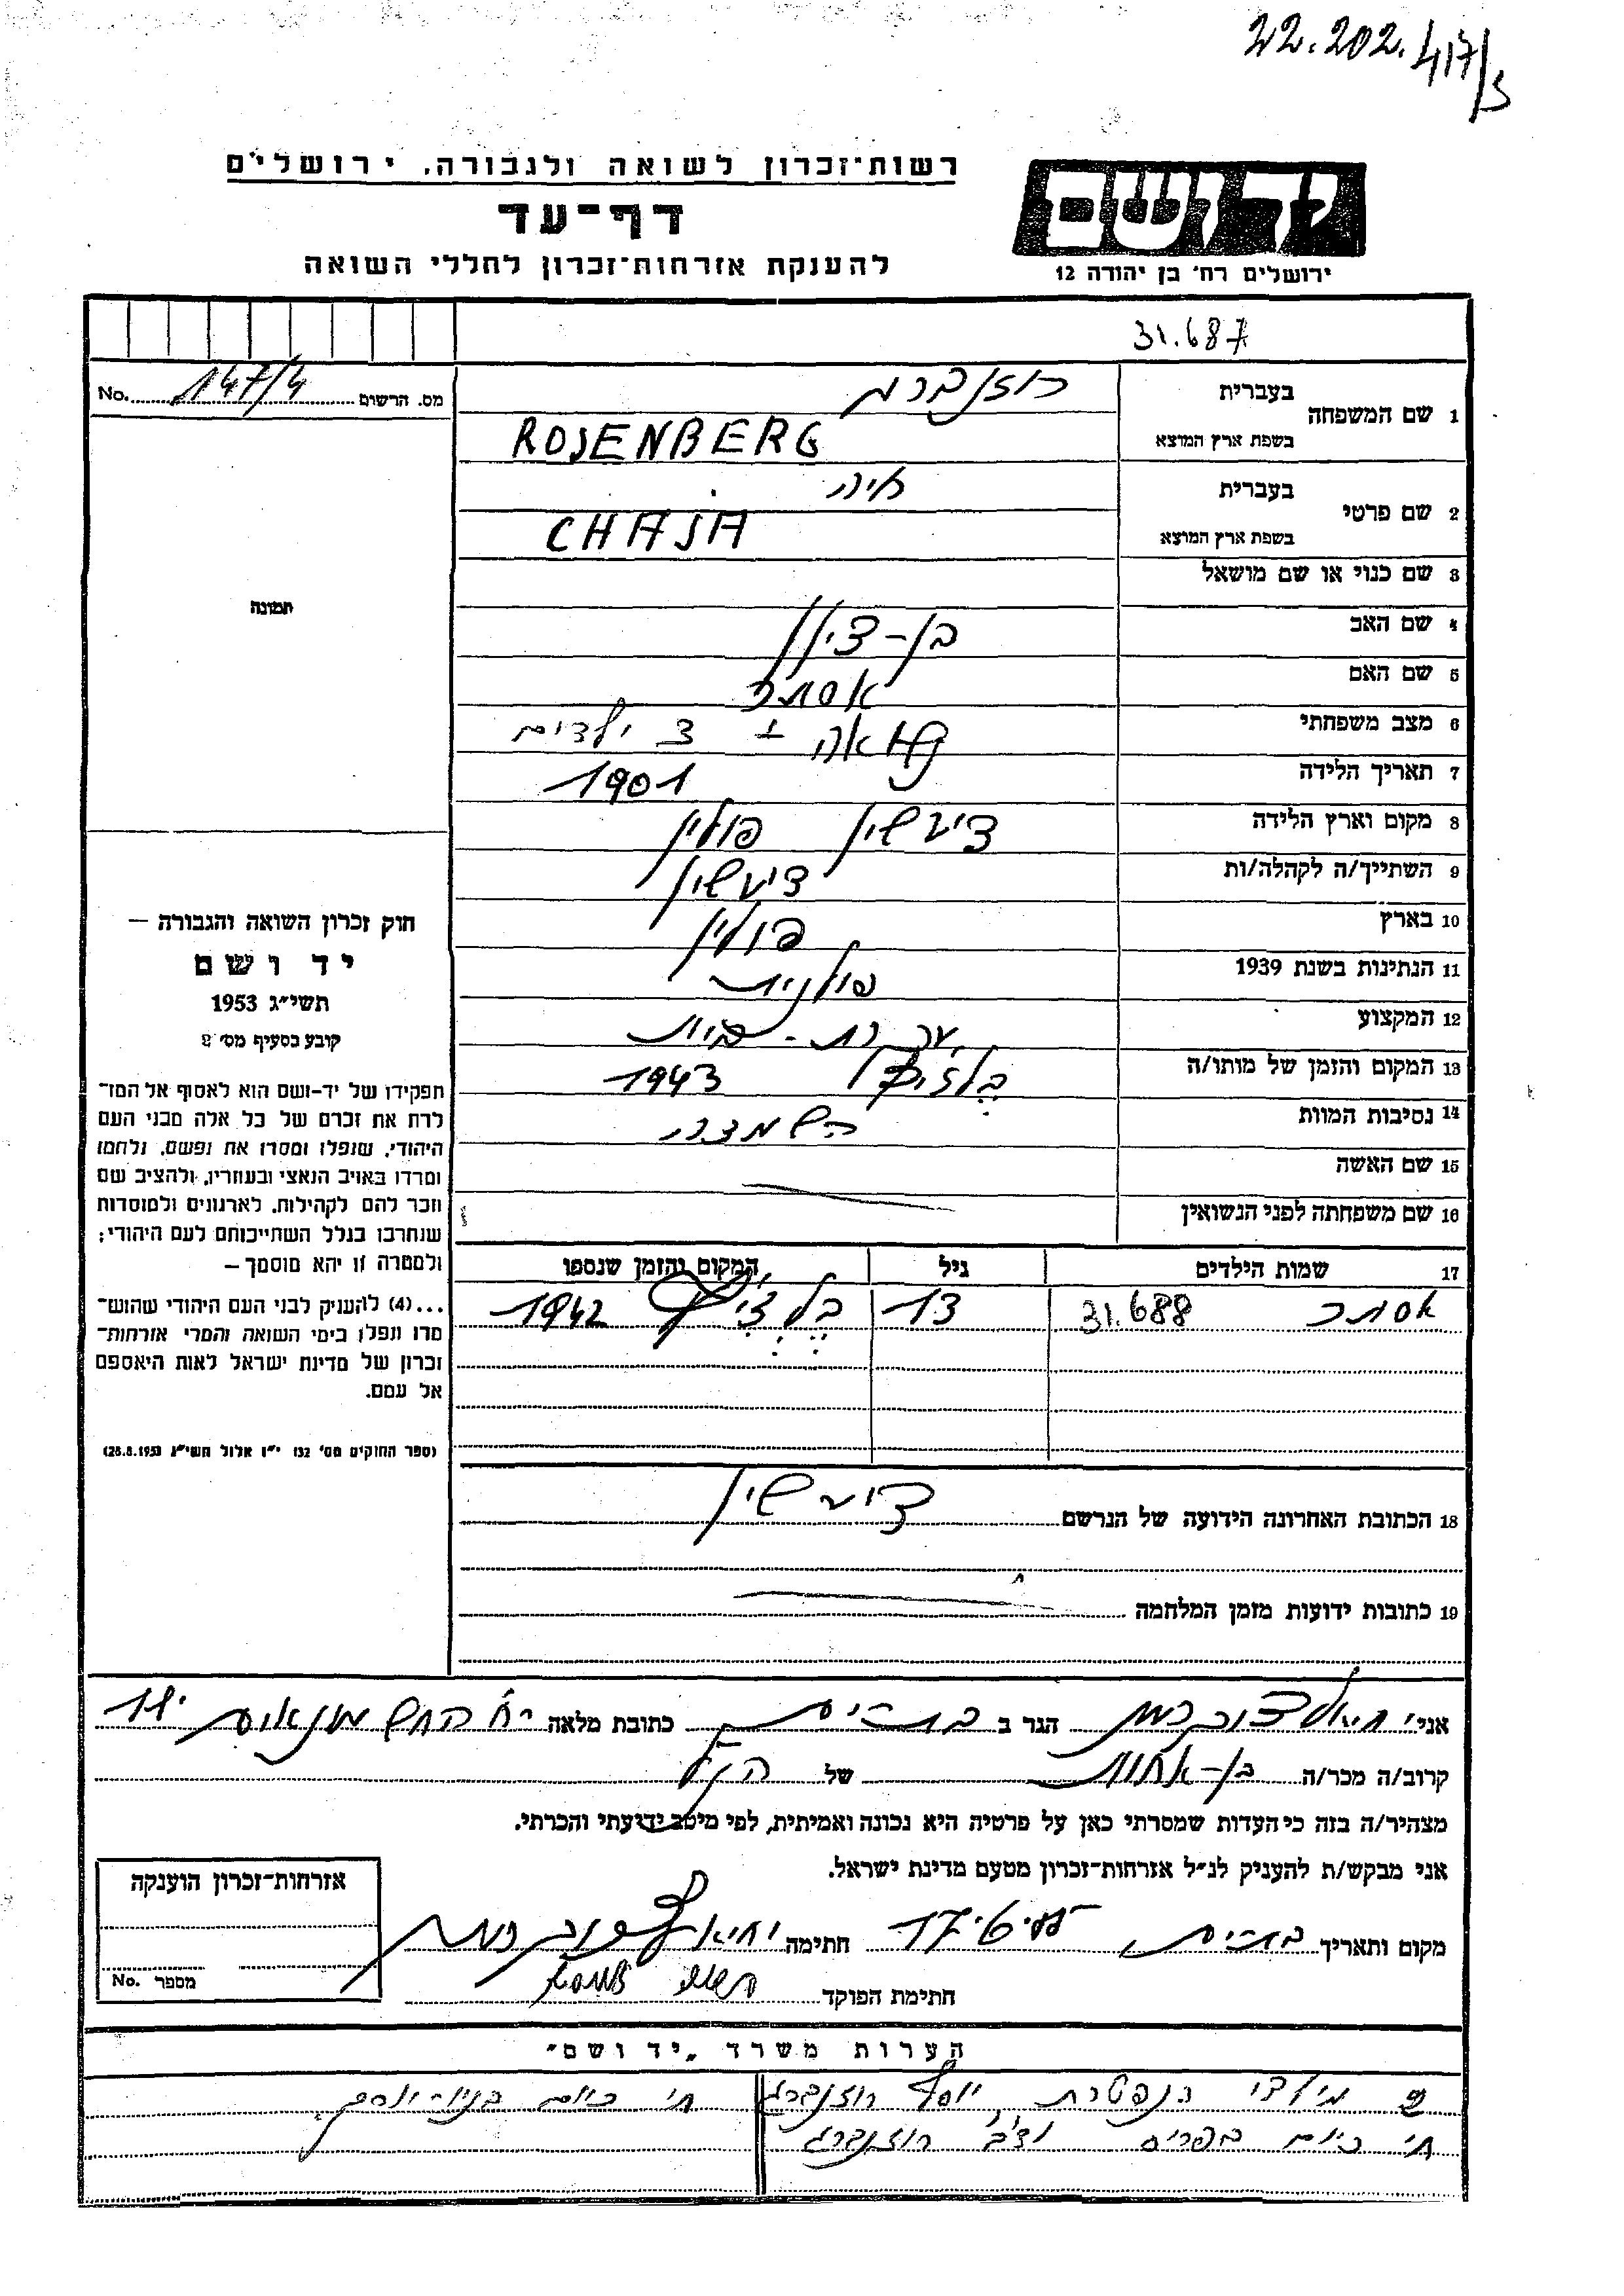 22.202.417/3
רשות־זכרון לשואה ולגבורה, ירושלים
דף-עד
להענקת אזרחות־זכרון לחללי השואה
יד ושם
ירושלים רח׳ בן יהודה 12
31.687
No. 147/4 מס. הרשום
1 שם המשפחה
בעברית רוזנברג
בשפת ארץ המוצא ROSENBERG
2 שם פרטי
בעברית חיה
בשפת ארץ המוצא CHAJA
3 שם כנוי או שם מושאל
4 שם האב בן-ציון
5 שם האם אסתר
6 מצב משפחתי נשואה + 3 ילדים
7 תאריך הלידה 1901
8 מקום וארץ הלידה פולין
9 השתייך/ה לקהלה/ות
10 בארץ פולין
11 הנתינות בשנת 1939 פולנית
12 המקצוע עקרת-בית
13 המקום והזמן של מותו/ה 1943
14 נסיבות המוות השמדה
15 שם האשה
16 שם משפחתה לפני הנשואין
17 שמות הילדים גיל המקום והזמן שנספו
אסתר 31.688 13 1942
18 הכתובת האחרונה הידועה של הנרשם
19 כתובות ידועות מזמן המלחמה
תמונה
חוק זכרון השואה והגבורה —
יד ושם
תשי״ג 1953
קובע בסעיף מס׳ 2
תפקידו של יד-ושם הוא לאסוף אל המו־
לדת את זכרם של כל אלה מבני העם
היהודי, שנפלו ומסרו את נפשם, נלחמו
ומרדו באויב הנאצי ובעוזריו, ולהציב שם
וזכר להם לקהילות, לארגונים ולמוסדות
שנחרבו בגלל השתייכותם לעם היהודי;
ולמטרה זו יהא מוסמך —
...(4) להעניק לבני העם היהודי שהוש־
מדו ונפלו בימי השואה והמרי אזרחות־
זכרון של מדינת ישראל לאות היאספם
אל עמם.
(ספר החוקים מס׳ 132 י״ז אלול תשי״ג 28.8.1953)
אני הגר ב כתובת מלאה
קרוב/ה מכר/ה בן-אחות של הנ״ל
מצהיר/ה בזה כי העדות שמסרתי כאן על פרטיה היא נכונה ואמיתית, לפי מיטב ידיעתי והכרתי.
אני מבקש/ת להעניק לנ״ל אזרחות-זכרון מטעם מדינת ישראל.
מקום ותאריך חתימה
חתימת הפוקד
אזרחות-זכרון הוענקה
מספר No.
הערות משרד „יד ושם״
יוסף רוזנברג חי כיום בניו-יורק.
חי כיום רוזנברג